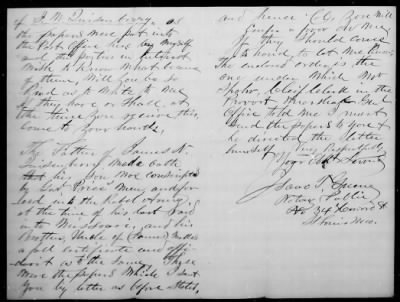 of J. M. Quisenberry. as
the papers were put into
the Post Office here by Myself
and the parties in interest
wish to Know what became
of them, Will you be so
kind as to write to me
if they have or shall, at
the time you receive this,
come to your hands,
The Father of James N.
Quisenberry Made Oath
his son was conscripted
by Genl Prices Army and for
ced into the Rebel Army,
at the time of his last raid
into Missouri, and his
Brother, Uncle of (James) made
a full certificate and affi-
davit as to the same, These
were the papers which I sent
you by letter as before stated,
and hence Col. you will
confer a favor on me
if they should come
to hand, to let me know
The enclosed order is the
one under which Mr
Chief Clerk in the
Provost Marshal Genl
Office told me I must
send the papers to you &
he directed the letter
himself Very Respectfully
Your Obt Servt
Isaac T. Greene
Notary Public
No 34
St Louis Mo.